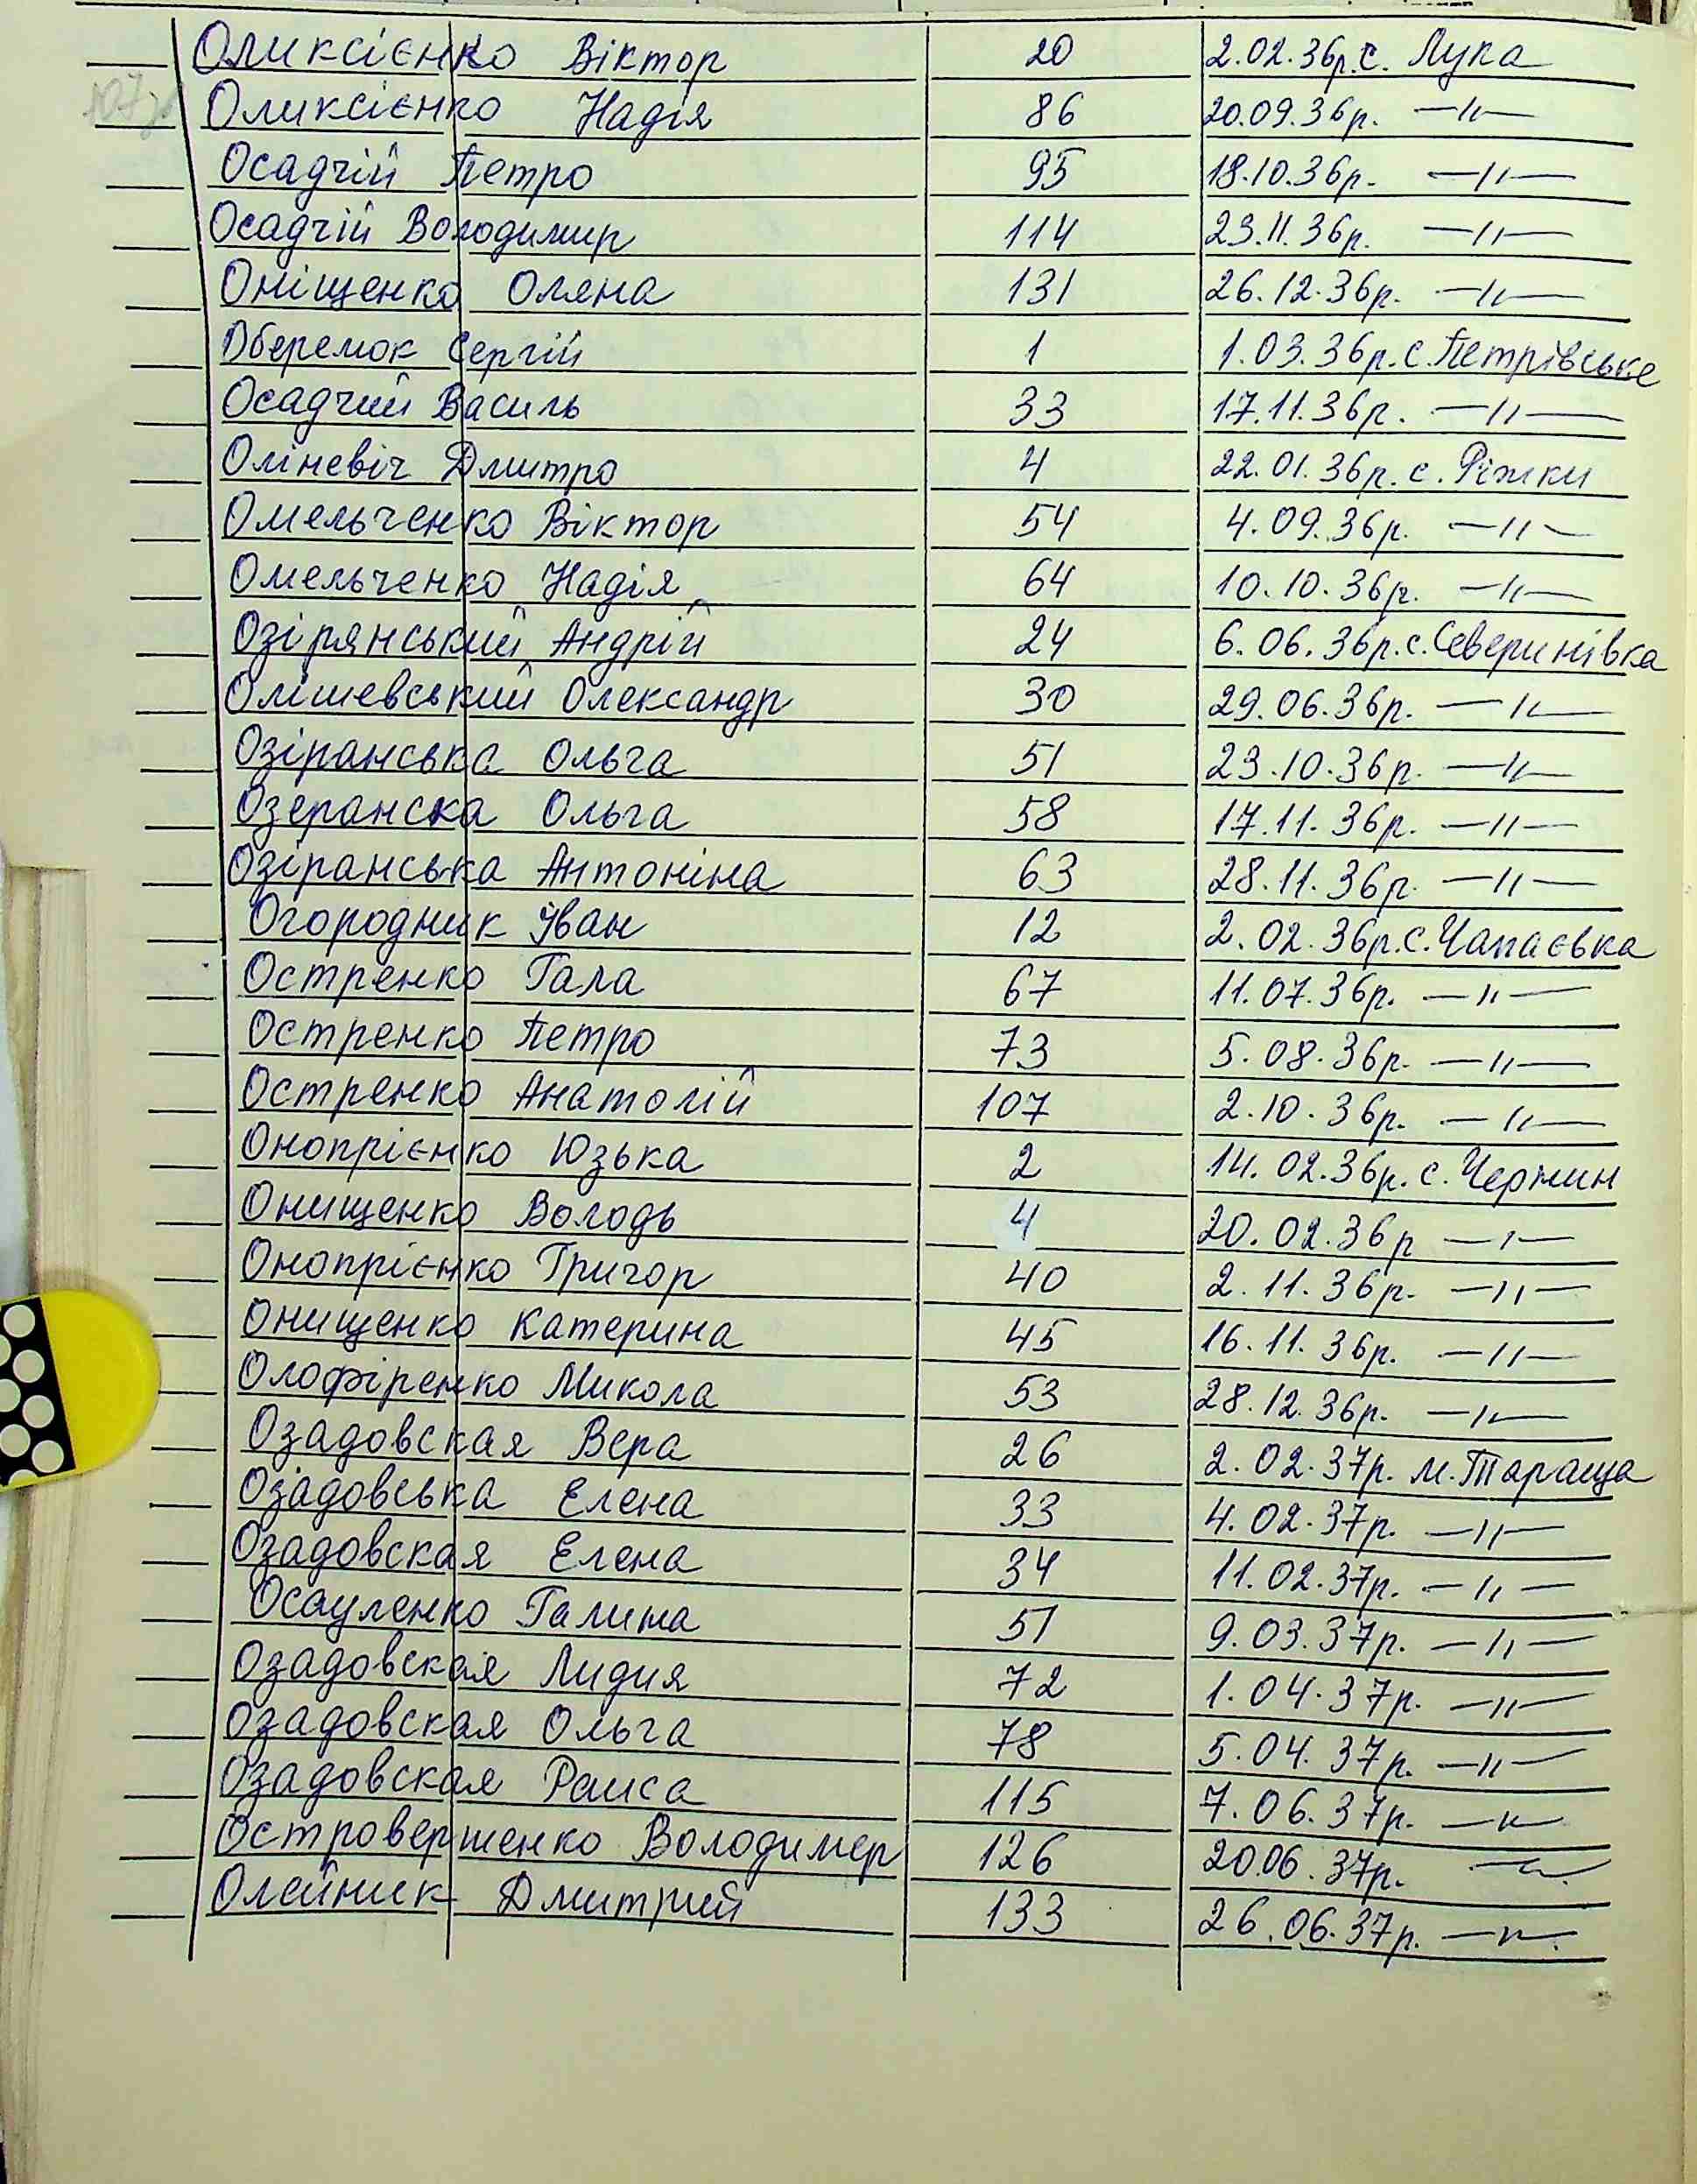 Оликсієнко Віктор 20 2.02.36р. с. Лука
Оликсієнко Надія 86 20.09.36р. —〃—
Осадчій Петро 95 18.10.36р. —〃—
Осадчій Володимир 114 23.11.36р. —〃—
Оніщенко Олена 131 26.12.36р. —〃—
Оберемок Сергій 1 1.03.36р. с. Петрівське
Осадчий Василь 33 17.11.36р. —〃—
Оліневіч Дмитро 4 22.01.36р. с. Ріжки
Омельченко Віктор 54 4.09.36р. —〃—
Омельченко Надія 64 10.10.36р. —〃—
Озірянський Андрій 24 6.06.36р. с. Северинівка
Олішевський Олександр 30 29.06.36р. —〃—
Озіранська Ольга 51 23.10.36р. —〃—
Озеранска Ольга 58 17.11.36р. —〃—
Озіранська Антоніна 63 28.11.36р. —〃—
Огородник Іван 12 2.02.36р. с. Чапаєвка
Остренко Гала 67 11.07.36р. —〃—
Остренко Петро 73 5.08.36р. —〃—
Остренко Анатолій 107 2.10.36р. —〃—
Онопрієнко Юзька 2 14.02.36р. с. Чернин
Онищенко Володь 4 20.02.36р —〃—
Онопрієнко Григор 40 2.11.36р. —〃—
Онищенко Катерина 45 16.11.36р. —〃—
Олофіренко Микола 53 28.12.36р. —〃—
Озадовская Вера 26 2.02.37р. м. Тараща
Озадовська Елена 33 4.02.37р. —〃—
Озадовская Елена 34 11.02.37р. —〃—
Осауленко Галина 51 9.03.37р. —〃—
Озадовская Лидия 72 1.04.37р. —〃—
Озадовская Ольга 78 5.04.37р. —〃—
Озадовская Раиса 115 7.06.37р. —〃—
Островершенко Володимер 126 20.06.37р. —〃—
Олейник Дмитрий 133 26.06.37р. —〃—